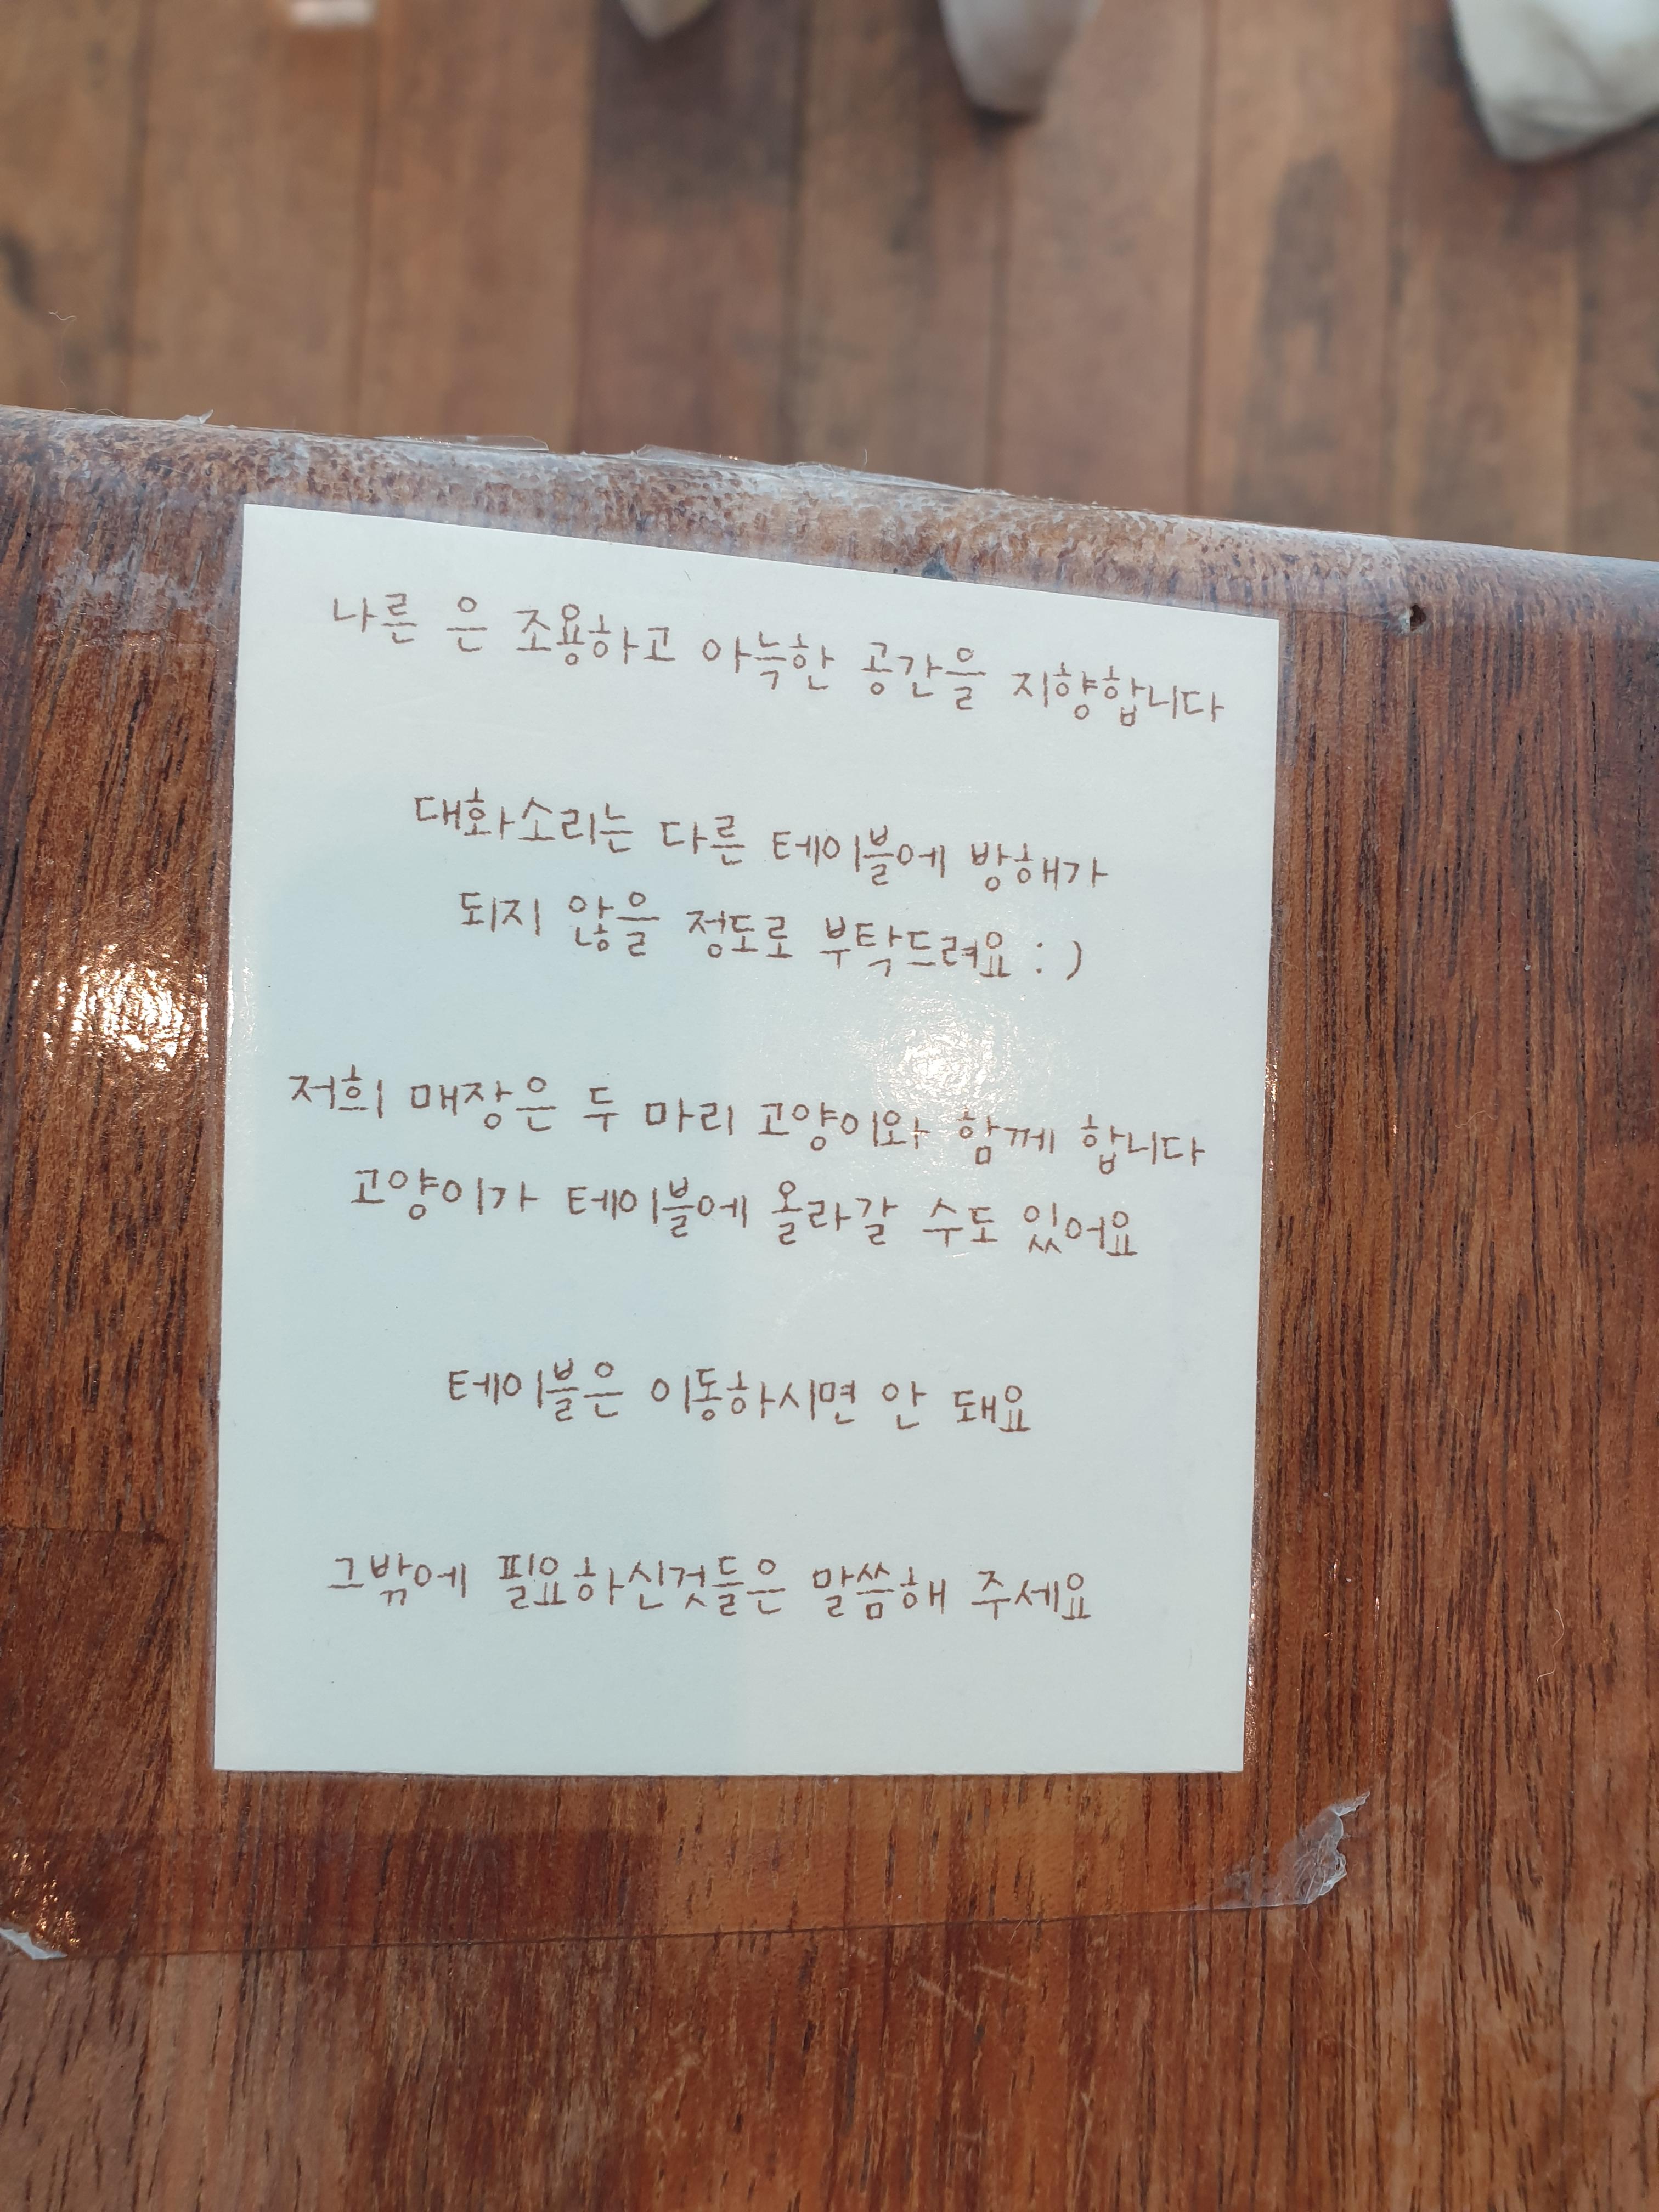 나른 은 조용하고 아늑한 공간을 지향합니다
대화소리는 다른 테이블에 방해가
되지 않을 정도로 부탁드려요 : )
저희 매장은 두 마리 고양이와 함께 합니다
고양이가 테이블에 올라갈 수도 있어요
테이블은 이동하시면 안 돼요
그밖에 필요하신것들은 말씀해 주세요